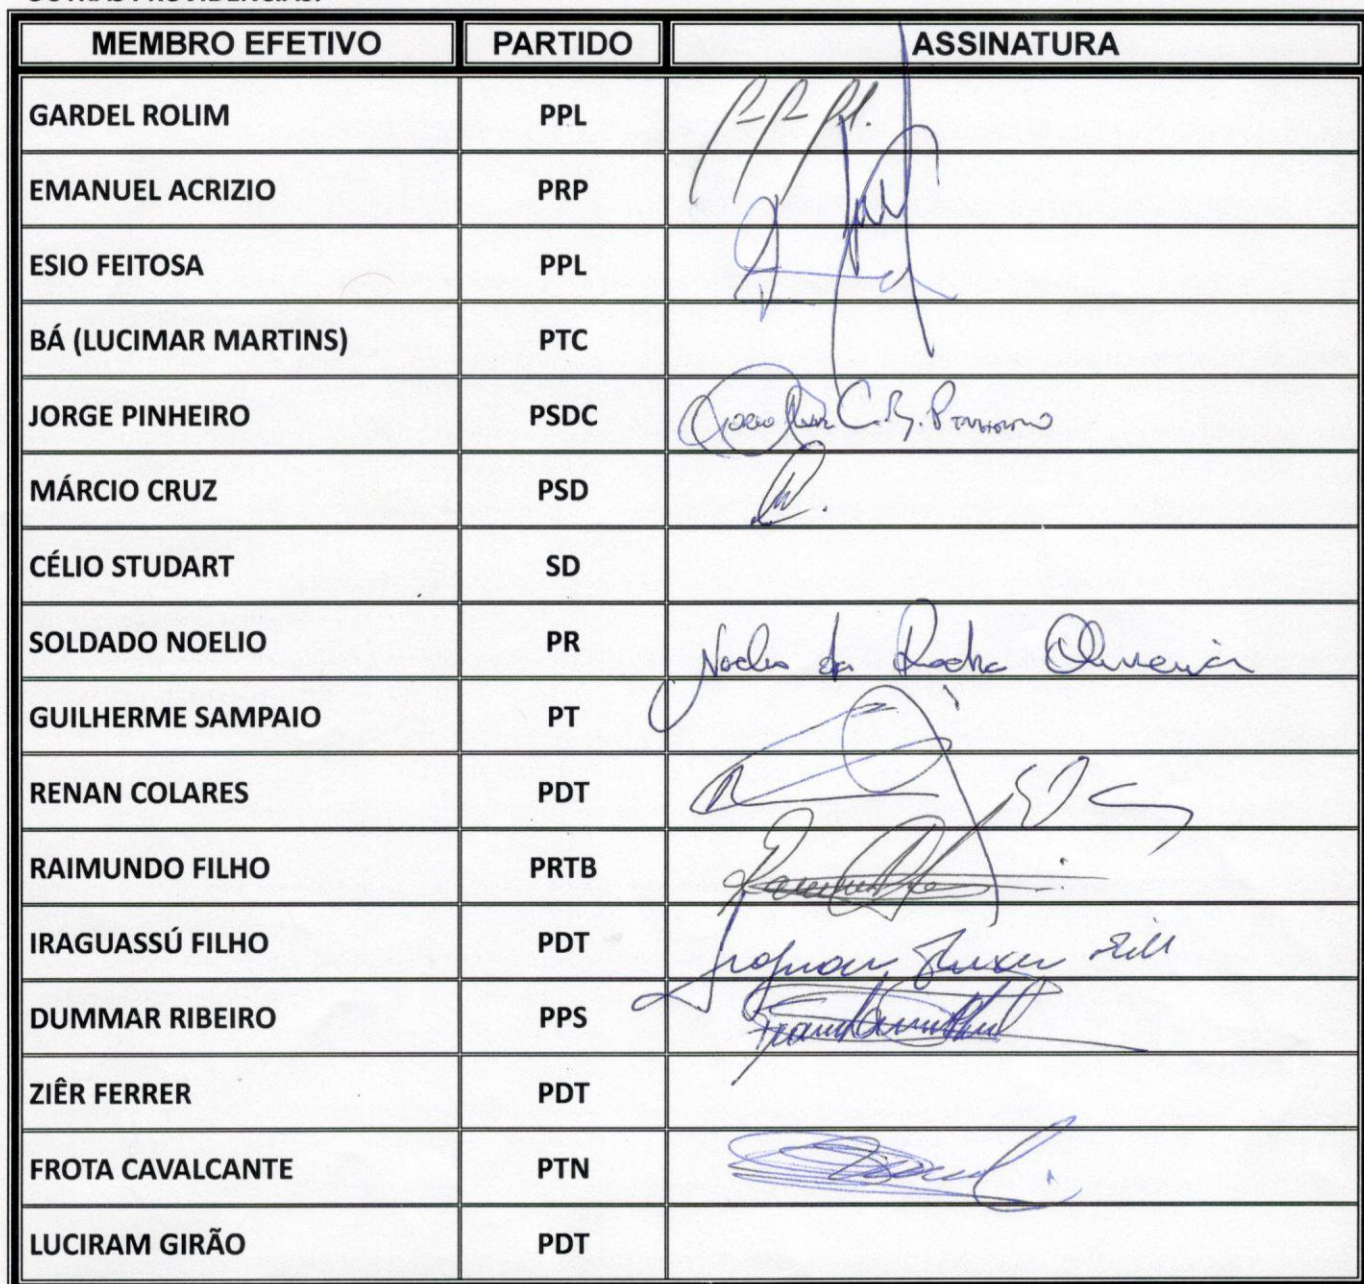 OUTRAS PROVIDÊNCIAS.
MEMBRO EFETIVO PARTIDO ASSINATURA
GARDEL ROLIM PPL
EMANUEL ACRIZIO PRP
ESIO FEITOSA PPL
BÁ (LUCIMAR MARTINS) PTC
JORGE PINHEIRO PSDC C. B. Pinheiro
MÁRCIO CRUZ PSD
CÉLIO STUDART SD
SOLDADO NOELIO PR Noelio da Rocha Oliveira
GUILHERME SAMPAIO PT
RENAN COLARES PDT
RAIMUNDO FILHO PRTB
IRAGUASSÚ FILHO PDT
DUMMAR RIBEIRO PPS
ZIÊR FERRER PDT
FROTA CAVALCANTE PTN
LUCIRAM GIRÃO PDT